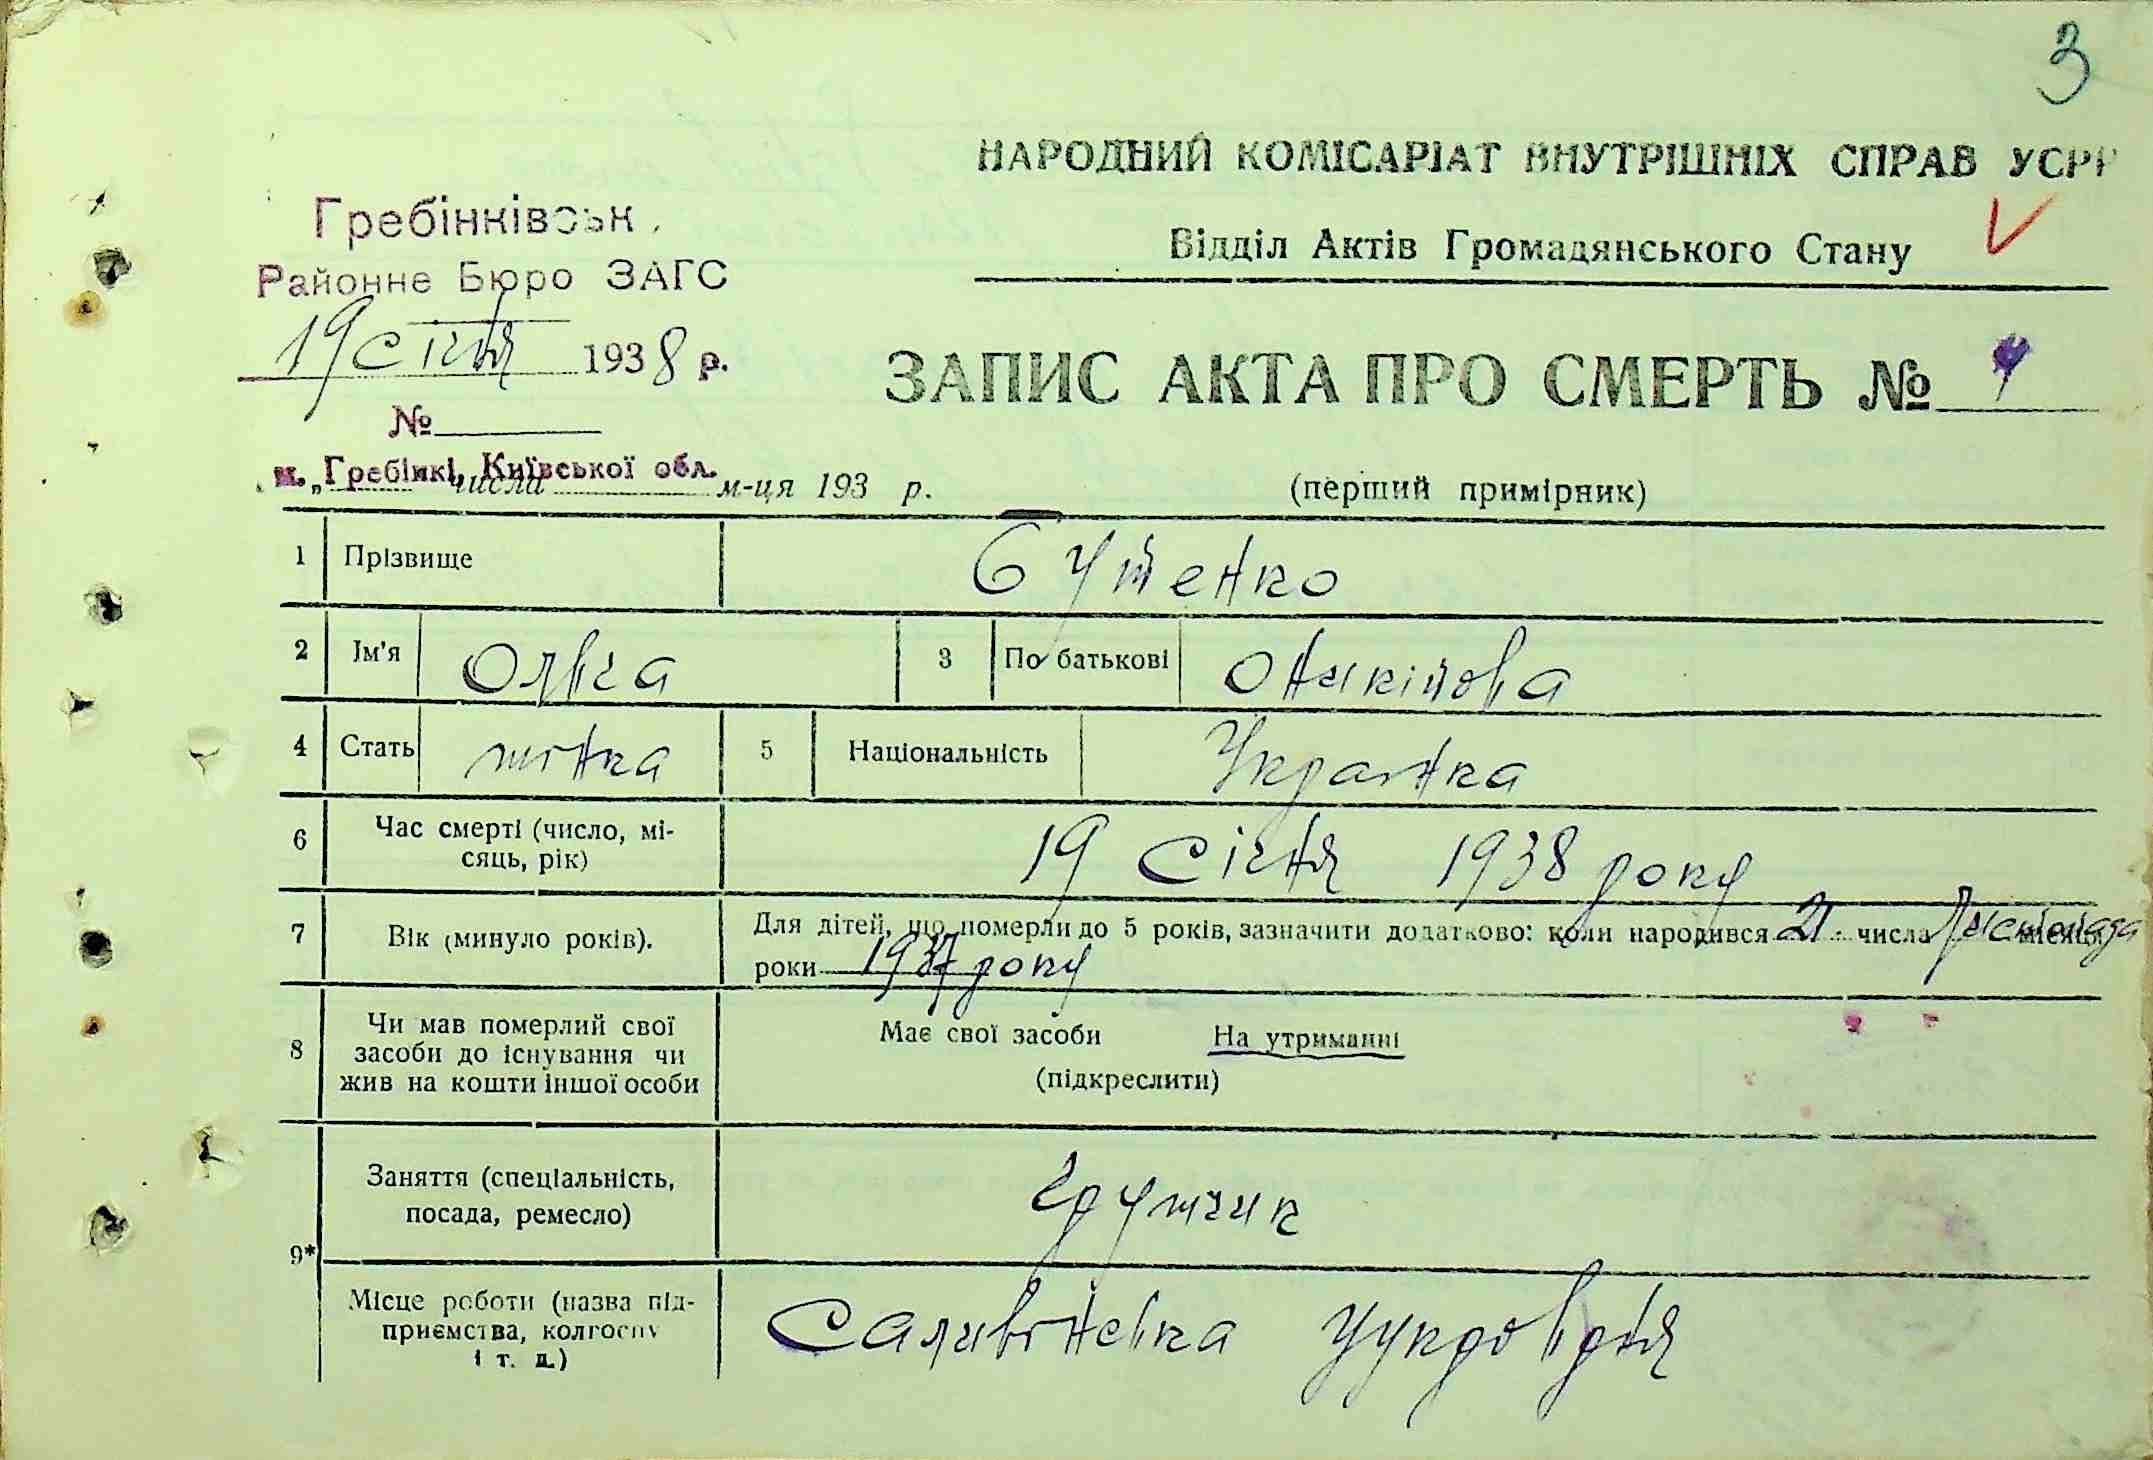 3
НАРОДНИЙ КОМІСАРІАТ ВНУТРІШНІХ СПРАВ УСРР
Відділ Актів Громадянського Стану
Гребінківськ.
Районне Бюро ЗАГС
19 січня 1938 р.
№
м. Гребінкі, Київської обл.
ЗАПИС АКТА ПРО СМЕРТЬ №
„ числа м-ця 193 р.
(перший примірник)
1 Прізвище Бутенко
2 Ім'я Ольга 3 По батькові Оникійова
4 Стать жінка 5 Національність Українка
6 Час смерті (число, мі-
сяць, рік) 19 Січня 1938 року
7 Вік (минуло років). Для дітей, що померли до 5 років, зазначити додатково: коли народився 21 числа Листопада місяця
роки 1937 року
8 Чи мав померлий свої
засоби до існування чи
жив на кошти іншої особи
Має свої засоби На утриманні
(підкреслити)
9* Заняття (спеціальність,
посада, ремесло) грузчик
Місце роботи (назва під-
приємства, колгоспу
і т. д.) Саливінівка